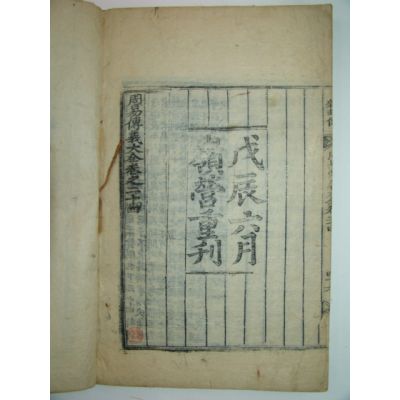 戊辰六月
嶺營重刊
周易傳義大全卷之二十四